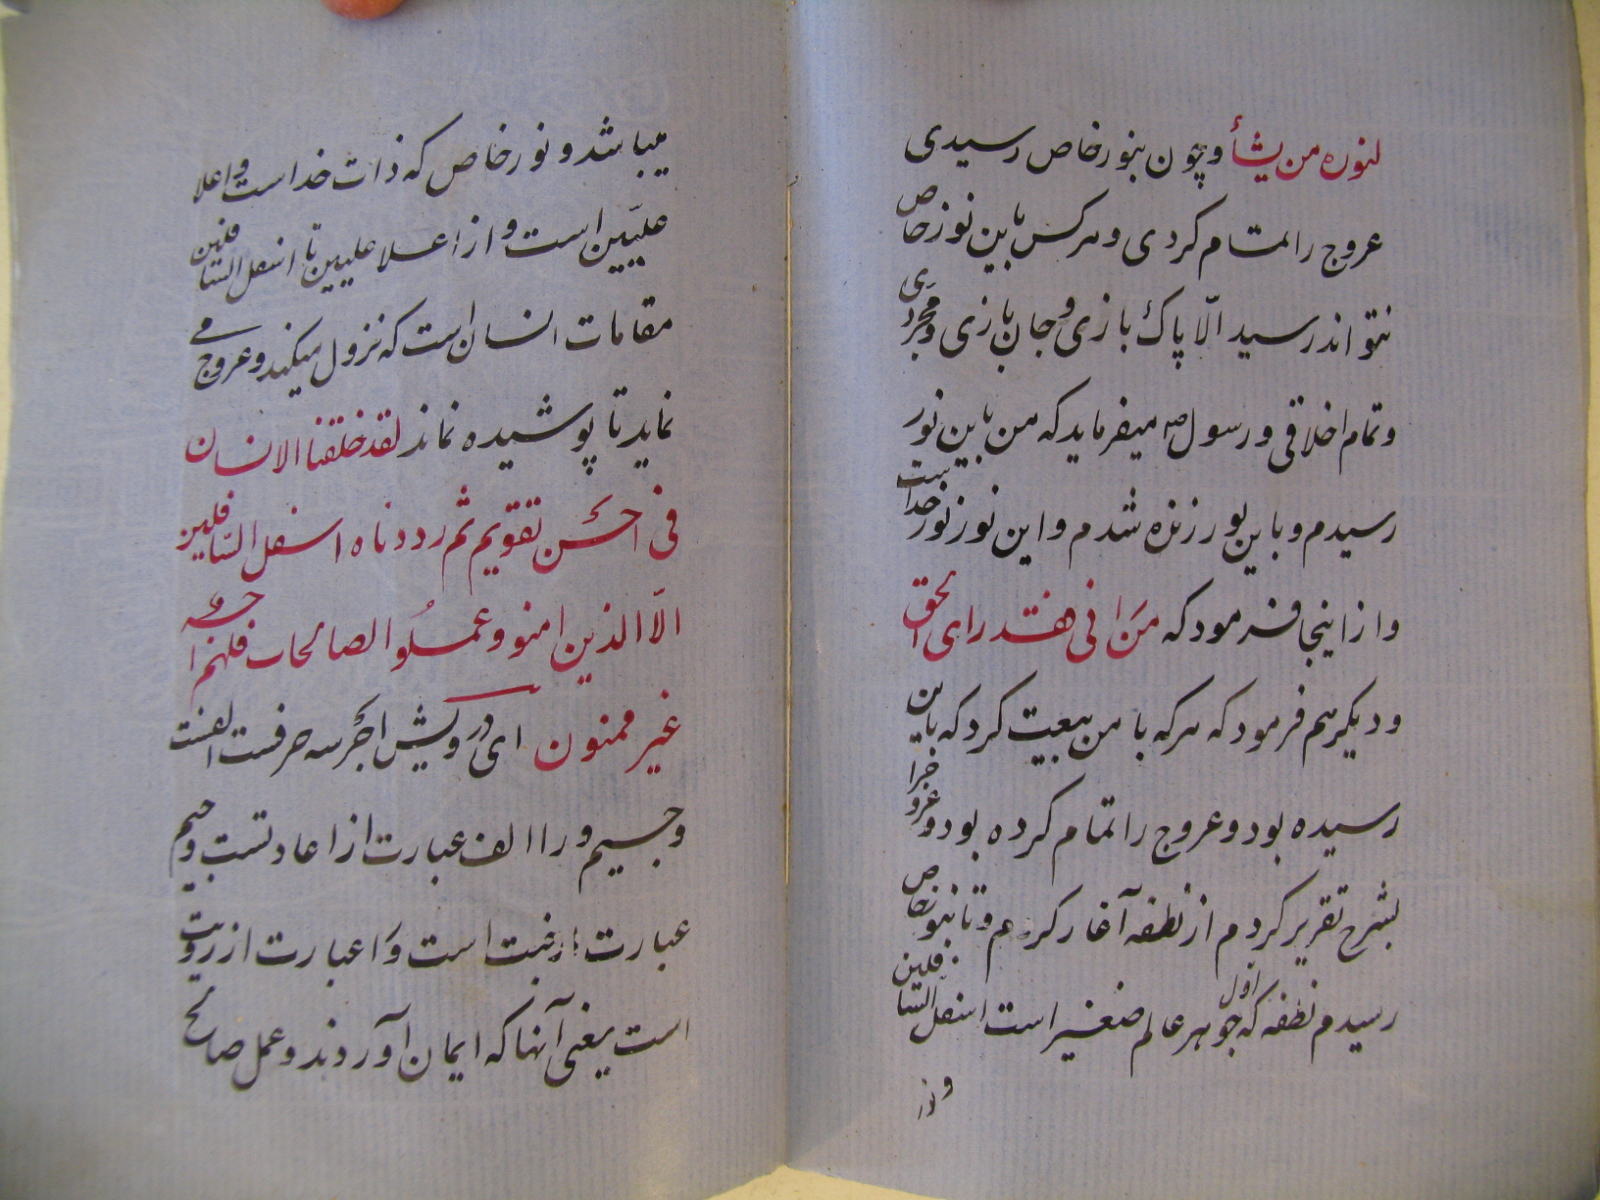 لنوره من یشأ و چون بنور خاص رسیدی
عروج را تمام کردی و هر کس باین نور خاص
نتواند رسید الّا پاک بازی و جان بازی و مجردی
و تمام اخلاقی و رسول ص میفرماید که من باین نور
رسیدم و باین نور زنده شدم و این نور نور خداست
و از اینجا فرمود که مَن رانی فقد رای الحق
و دیکر هم فرمود که هر که با من بیعت کرد که باین
رسیده بود و عروج را تمام کرده بود و
بشرح تقریر کردم از نطفه آغاز کردم و تا بنور خاص
رسیدم نطفه که اول جوهر عالم صغیر است اسفل السافلین
و نور
میباشد و نور خاص که ذات خداست و اعلا
علیّین است و از اعلا علیین تا اسفل السافلین
مقامات انسان است که نزول میکند و عروج می
نماید تا پوشیده نماند لقد خلقنا الانسان
فی احسن تقویم ثم رددناه اسفل السّافلین
الّا الذین امنو و عملُوا الصالحات فلهم اجر
غیر ممنون ای درویش اجر سه حرفست الفست
و جیم و را الف عبارت از اعادتست و جیم
عبارت از جنت است وَ را عبارت از رویت
است یعنی آنها که ایمان آوردند و عمل صالح